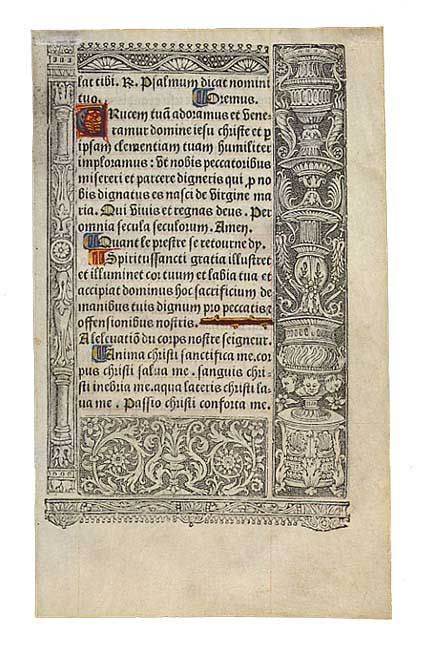 lat tibi. R. Psalmum dicat nomini
tuo. Oremus.
CRucem tuã adoramus et vene
ramur domine iesu christe et p
ipsam clementiam tuam humiliter
imploramus: vt nobis peccatoribus
misereri et parcere digneris qui, p no
bis dignatus es nasci de virgine ma
ria. Qui viuis et regnas deus. Per
omnia secula seculorum. Amen.
Quant le prestre se retourne dy.
SPiritussancti gratia illustret
et illuminet cor tuum et labia tua et
accipiat dominus hoc sacrificium de
manibus tuis dignum pro peccatis⁊
offensionibus nostris.
A leleuatiõ du corps nostre seigneur.
Anima christi sanctifica me. cor
pus christi salua me. sanguis chri
sti inebria me. aqua lateris christi la
ua me. Passio christi conforta me.